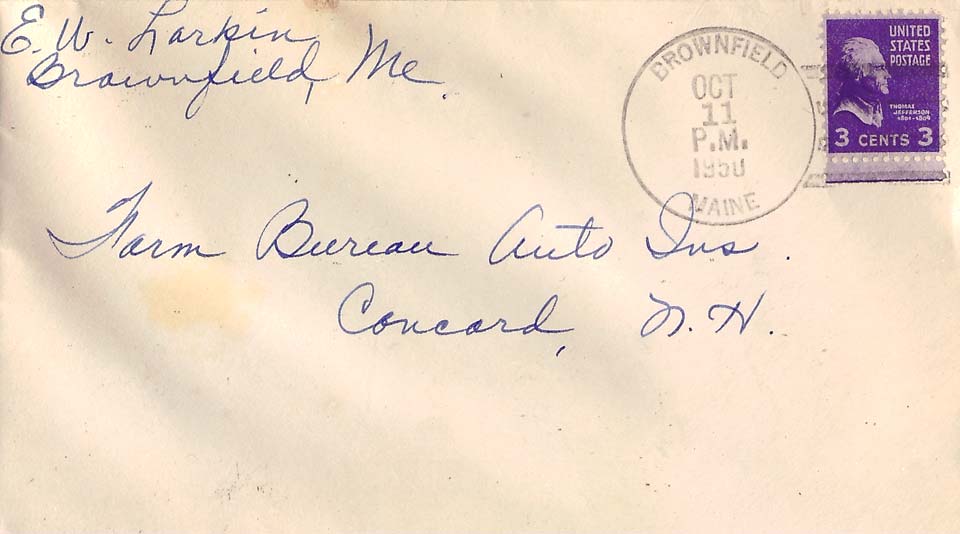 E. W. Larkin
Brownfield, Me.
BROWNFIELD
OCT
11
P.M.
1950
MAINE
UNITED
STATES
POSTAGE
THOMAS
JEFFERSON
1801-1809
3 CENTS 3
Farm Bureau Auto Ins.
Concord, N. H.